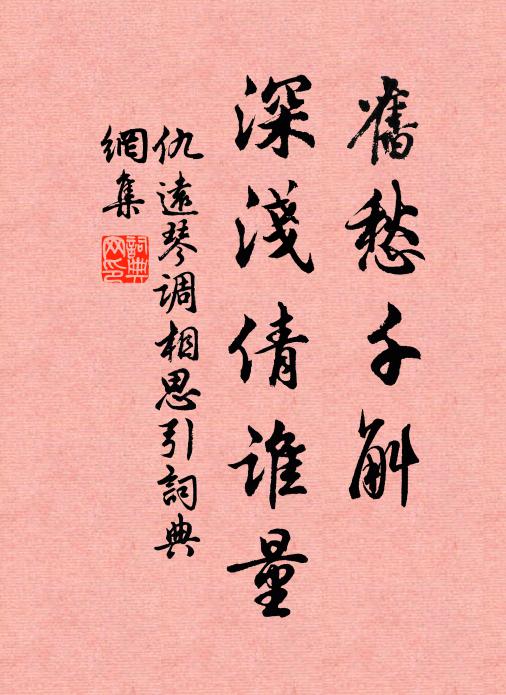 舊愁千斛
深淺倩誰量
仇遠琴調相思引詞典
網集
詞典
网印